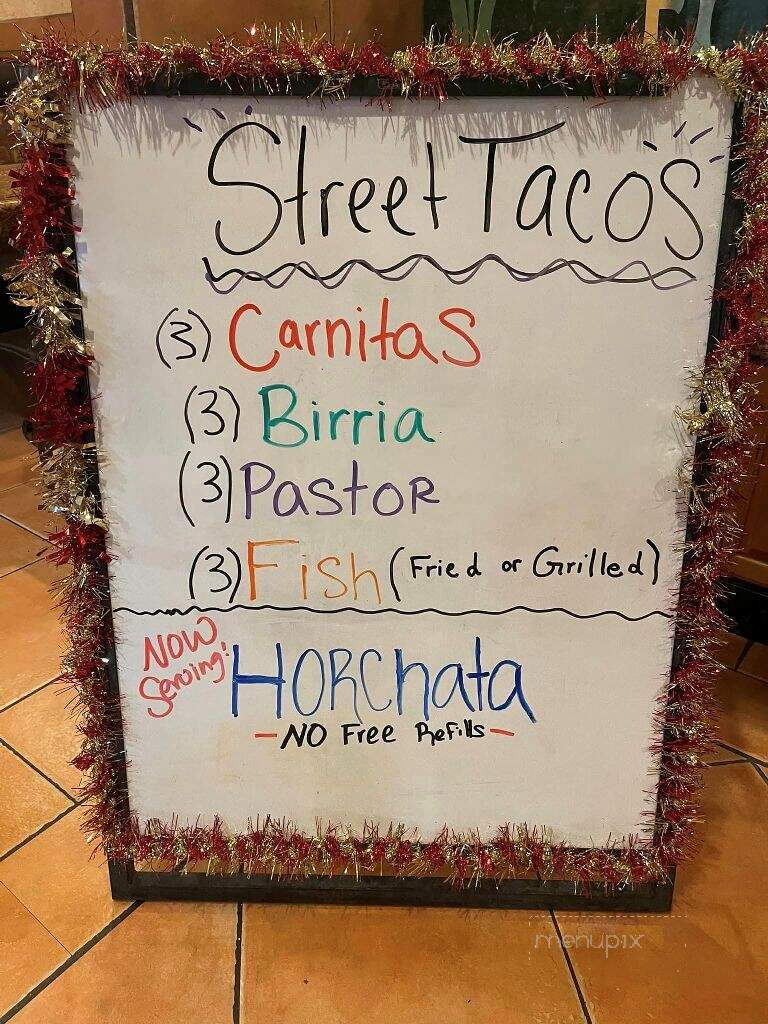 Street Tacos
(3) Carnitas
(3) Birria
(3) Pastor
(3) Fish (Fried or Grilled)
NOW Serving: HORChata
-NO Free Refills-
menupix